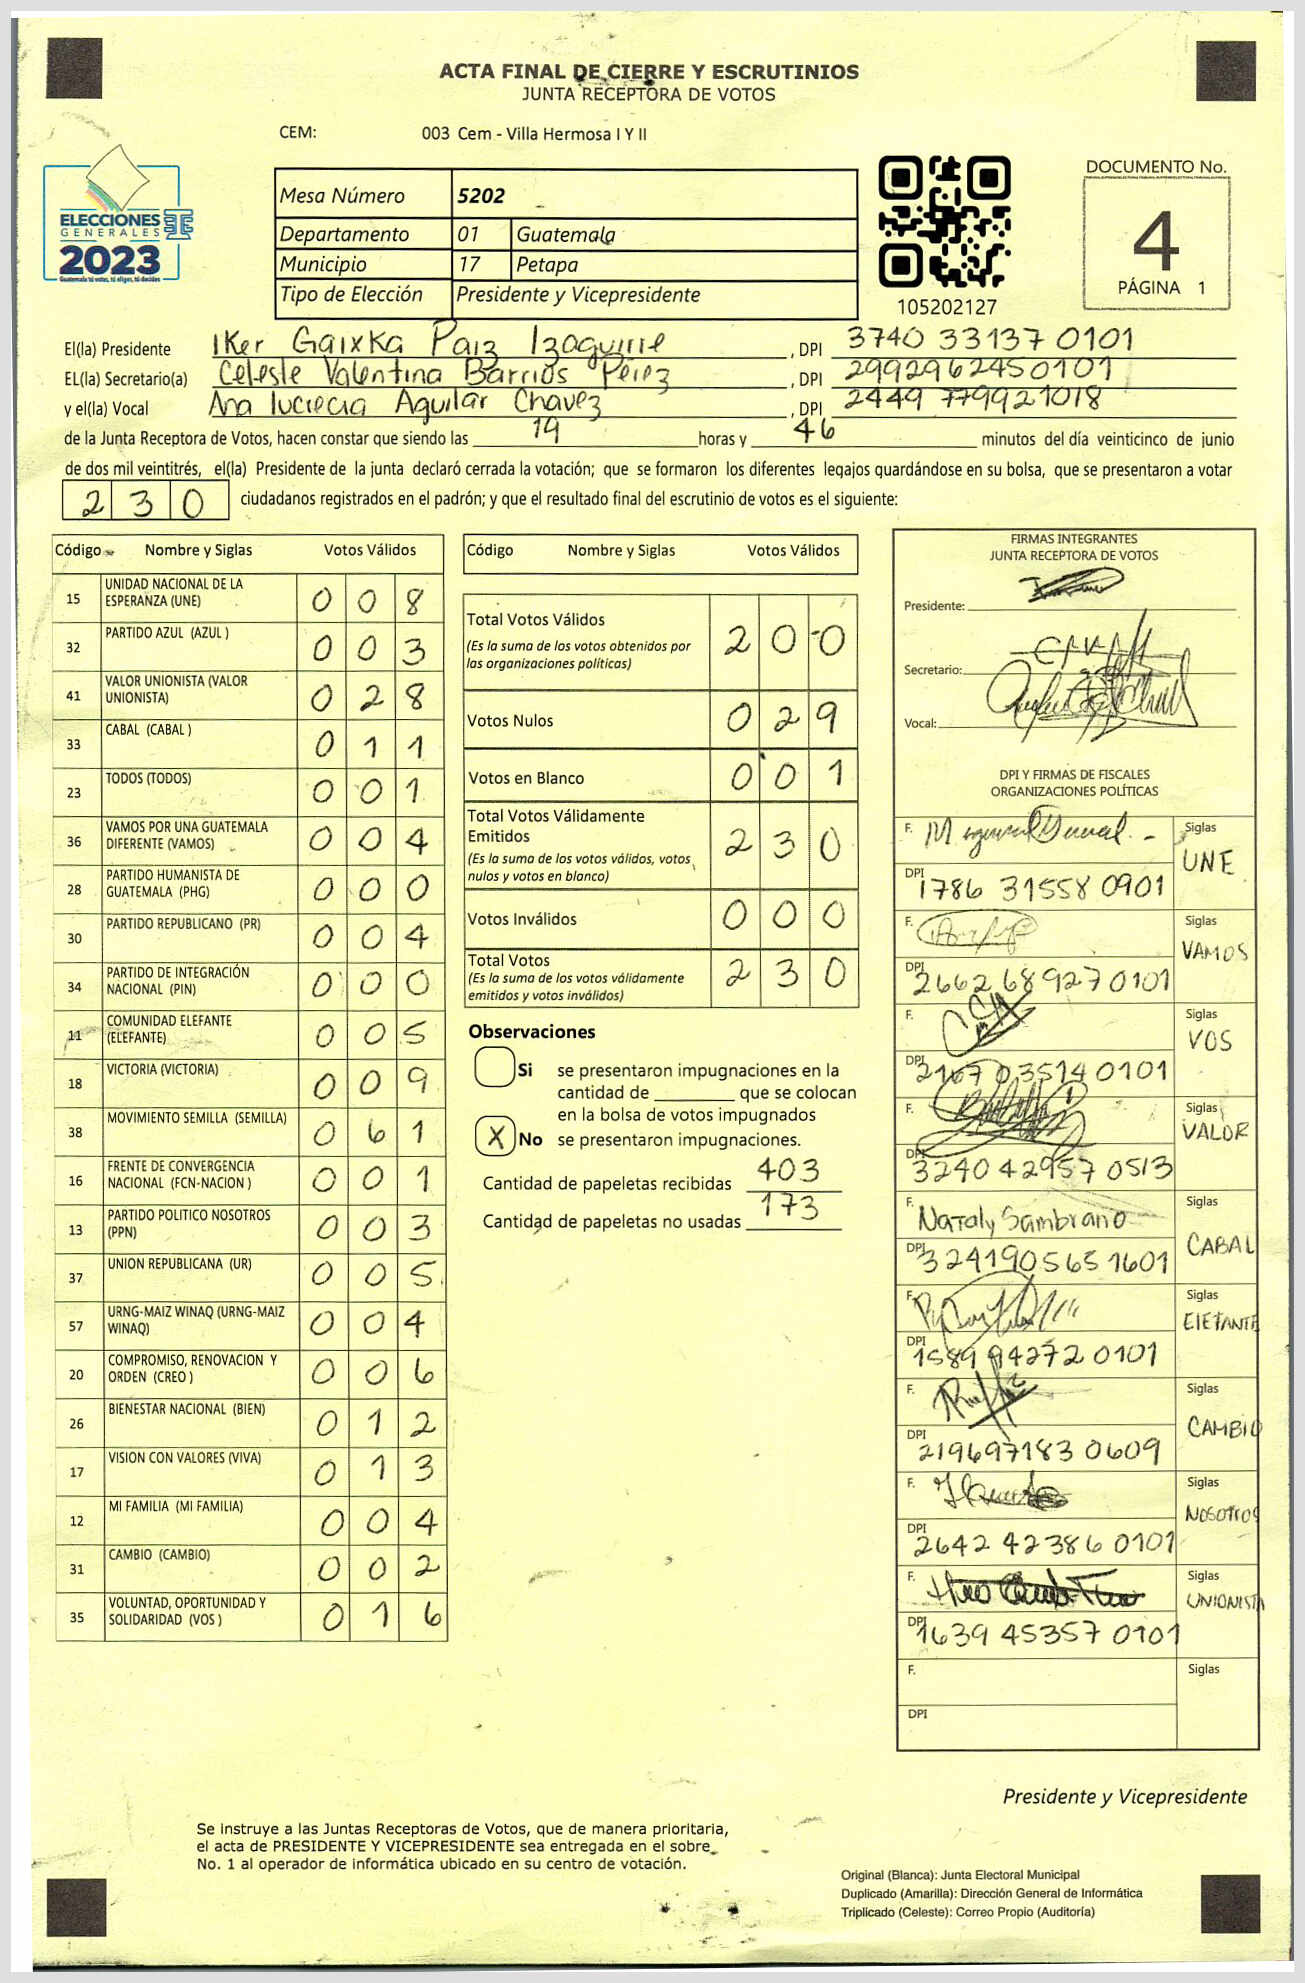 ACTA FINAL DE CIERRE Y ESCRUTINIOS
JUNTA RECEPTORA DE VOTOS
CEM: 003 Cem - Villa Hermosa I Y II
ELECCIONES
GENERALES
2023
Guatemala tú votas, tú eliges, tú decides
Mesa Número 5202
Departamento 01 Guatemala
Municipio 17 Petapa
Tipo de Elección Presidente y Vicepresidente
105202127
DOCUMENTO No.
4
PÁGINA 1
El(la) Presidente Iker Gaixka Paiz Izaguirre, DPI 3740 33137 0101
EL(la) Secretario(a) Celeste Valentina Barrios Pérez, DPI 2992962450101
y el(la) Vocal Ana lucrecia Aguilar Chavez, DPI 2449 779921018
de la Junta Receptora de Votos, hacen constar que siendo las 19 horas y 46 minutos del día veinticinco de junio
de dos mil veintitrés, el(la) Presidente de la junta declaró cerrada la votación; que se formaron los diferentes legajos guardándose en su bolsa, que se presentaron a votar
230 ciudadanos registrados en el padrón; y que el resultado final del escrutinio de votos es el siguiente:
Código Nombre y Siglas Votos Válidos
15 UNIDAD NACIONAL DE LA ESPERANZA (UNE) 008
32 PARTIDO AZUL (AZUL ) 003
41 VALOR UNIONISTA (VALOR UNIONISTA) 028
33 CABAL (CABAL ) 011
23 TODOS (TODOS) 001
36 VAMOS POR UNA GUATEMALA DIFERENTE (VAMOS) 004
28 PARTIDO HUMANISTA DE GUATEMALA (PHG) 000
30 PARTIDO REPUBLICANO (PR) 004
34 PARTIDO DE INTEGRACIÓN NACIONAL (PIN) 000
11 COMUNIDAD ELEFANTE (ELEFANTE) 005
18 VICTORIA (VICTORIA) 009
38 MOVIMIENTO SEMILLA (SEMILLA) 061
16 FRENTE DE CONVERGENCIA NACIONAL (FCN-NACION ) 001
13 PARTIDO POLITICO NOSOTROS (PPN) 003
37 UNION REPUBLICANA (UR) 005
57 URNG-MAIZ WINAQ (URNG-MAIZ WINAQ) 004
20 COMPROMISO, RENOVACION Y ORDEN (CREO ) 006
26 BIENESTAR NACIONAL (BIEN) 012
17 VISION CON VALORES (VIVA) 013
12 MI FAMILIA (MI FAMILIA) 004
31 CAMBIO (CAMBIO) 002
35 VOLUNTAD, OPORTUNIDAD Y SOLIDARIDAD (VOS ) 016
Código Nombre y Siglas Votos Válidos
Total Votos Válidos 200
(Es la suma de los votos obtenidos por
las organizaciones políticas)
Votos Nulos 029
Votos en Blanco 001
Total Votos Válidamente
Emitidos 230
(Es la suma de los votos válidos, votos
nulos y votos en blanco)
Votos Inválidos 000
Total Votos 230
(Es la suma de los votos válidamente
emitidos y votos inválidos)
Observaciones
Si se presentaron impugnaciones en la
cantidad de ________ que se colocan
en la bolsa de votos impugnados
X No se presentaron impugnaciones.
Cantidad de papeletas recibidas 403
Cantidad de papeletas no usadas 173
FIRMAS INTEGRANTES
JUNTA RECEPTORA DE VOTOS
Presidente:
Secretario:
Vocal:
DPI Y FIRMAS DE FISCALES
ORGANIZACIONES POLÍTICAS
F. Siglas UNE
DPI 1786 31558 0901
F. Siglas VAMOS
DPI 2662 68927 0101
F. Siglas VOS
DPI 2167 03514 0101
F. Siglas VALOR
DPI 3240 42957 0513
F. Nataly Sambrano Siglas CABAL
DPI 324190565 1601
F. Siglas ElEFANTE
DPI 1589 94272 0101
F. Siglas CAMBIO
DPI 219697183 0609
F. Siglas NOSOTROS
DPI 2642 42386 0101
F. Siglas UNIONISTA
DPI 1639 45357 0101
F. Siglas
DPI
Presidente y Vicepresidente
Se instruye a las Juntas Receptoras de Votos, que de manera prioritaria,
el acta de PRESIDENTE Y VICEPRESIDENTE sea entregada en el sobre
No. 1 al operador de informática ubicado en su centro de votación.
Original (Blanca): Junta Electoral Municipal
Duplicado (Amarilla): Dirección General de Informática
Triplicado (Celeste): Correo Propio (Auditoría)